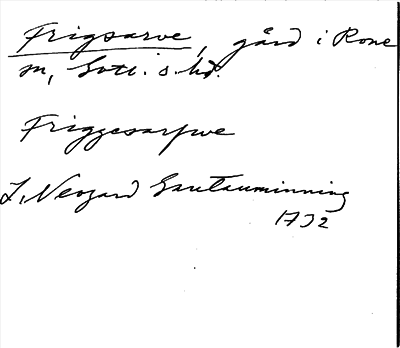 Frigsarve, gård i Rone
sn, Gotl. s. hd.
Friggesarfwe
L. Neogard Gautauminning
1732